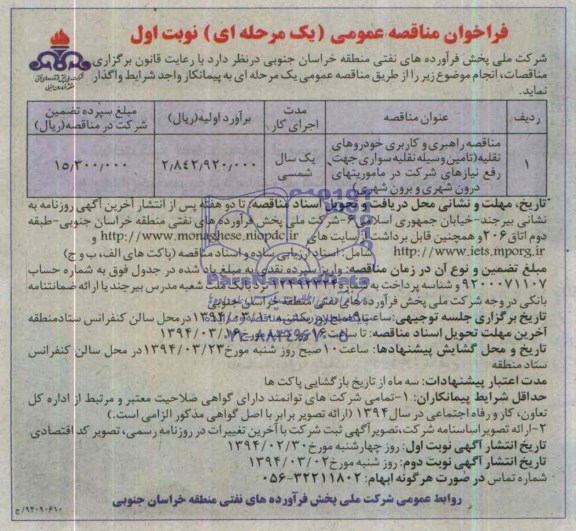 فراخوان مناقصه عمومی (یک مرحله ای) نوبت اول
شرکت ملی پخش فرآورده های نفتی منطقه خراسان جنوبی درنظر دارد با رعایت قانون برگزاری
مناقصات، انجام موضوع زیر را از طریق مناقصه عمومی یک مرحله ای به پیمانکار واجد شرایط واگذار
نماید.
ردیف
عنوان مناقصه
مدت اجرای کار
برآورد اولیه(ریال)
مبلغ سپرده تضمین شرکت در مناقصه(ریال)
۱
مناقصه راهبری و کاربری خودروهای
نقلیه(تامین وسیله نقلیه سواری جهت
رفع نیازهای شرکت در ماموریتهای
درون شهری و برون شهری)
یک سال شمسی
۲٫۸۴۲٫۹۲۰٫۰۰۰
۱۵٫۳۰۰٫۰۰۰
تاریخ، مهلت و نشانی محل دریافت و تحویل اسناد مناقصه: تا دو هفته پس از انتشار آخرین آگهی روزنامه به
نشانی بیرجند-خیابان جمهوری اسلامی ۶-شرکت ملی پخش فرآورده های نفتی منطقه خراسان جنوبی-طبقه
دوم اتاق ۲۰۶ و همچنین قابل برداشت از سایت های http://www.monaghese.niopdc.ir و
http://www.iets.mporg.ir شامل: اسناد ارزیابی ساده و اسناد مناقصه (پاکت های الف، ب و ج)
مبلغ تضمین و نوع آن در زمان مناقصه: واریز سپرده نقدی به مبلغ یاد شده در جدول فوق به شماره حساب
و شناسه پرداخت به شماره نزد بانک شعبه مدرس بیرجند یا ارائه ضمانتنامه
بانکی در وجه شرکت ملی پخش فرآورده های نفتی منطقه خراسان جنوبی
تاریخ برگزاری جلسه توجیهی: ساعت صبح روز یکشنبه مورخ ۱۳۹۴/۰۳/۱۰ درمحل سالن کنفرانس ستادمنطقه
آخرین مهلت تحویل اسناد مناقصه: تا ساعت مورخ ۱۳۹۴/۰۳/
تاریخ و محل گشایش پیشنهادها: ساعت ۱۰ صبح روز شنبه مورخ ۱۳۹۴/۰۳/۲۳ در محل سالن کنفرانس
ستاد منطقه
مدت اعتبار پیشنهادات: سه ماه از تاریخ بازگشایی پاکت ها
حداقل شرایط پیمانکاران: ۱-تمامی شرکت های توانمند دارای گواهی صلاحیت معتبر و مرتبط از اداره کل
تعاون، کار و رفاه اجتماعی در سال ۱۳۹۴ (ارائه تصویر برابر با اصل گواهی مذکور الزامی است.)
۲-ارائه تصویر اساسنامه شرکت، تصویر آگهی ثبت شرکت با آخرین تغییرات در روزنامه رسمی، تصویر کد اقتصادی
تاریخ انتشار آگهی نوبت اول: روز چهارشنبه مورخ ۱۳۹۴/۰۲/۳۰
تاریخ انتشار آگهی نوبت دوم: روز شنبه مورخ ۱۳۹۴/۰۳/۰۲
شماره تماس در صورت هرگونه ابهام: ۳۲۲۱۱۸۰۲-۰۵۶
روابط عمومی شرکت ملی پخش فرآورده های نفتی منطقه خراسان جنوبی
۹۴۰۹۰۶۱۰/ج